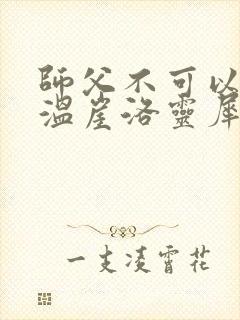 師父不可以
溫崖洛靈犀
一支凌霄花